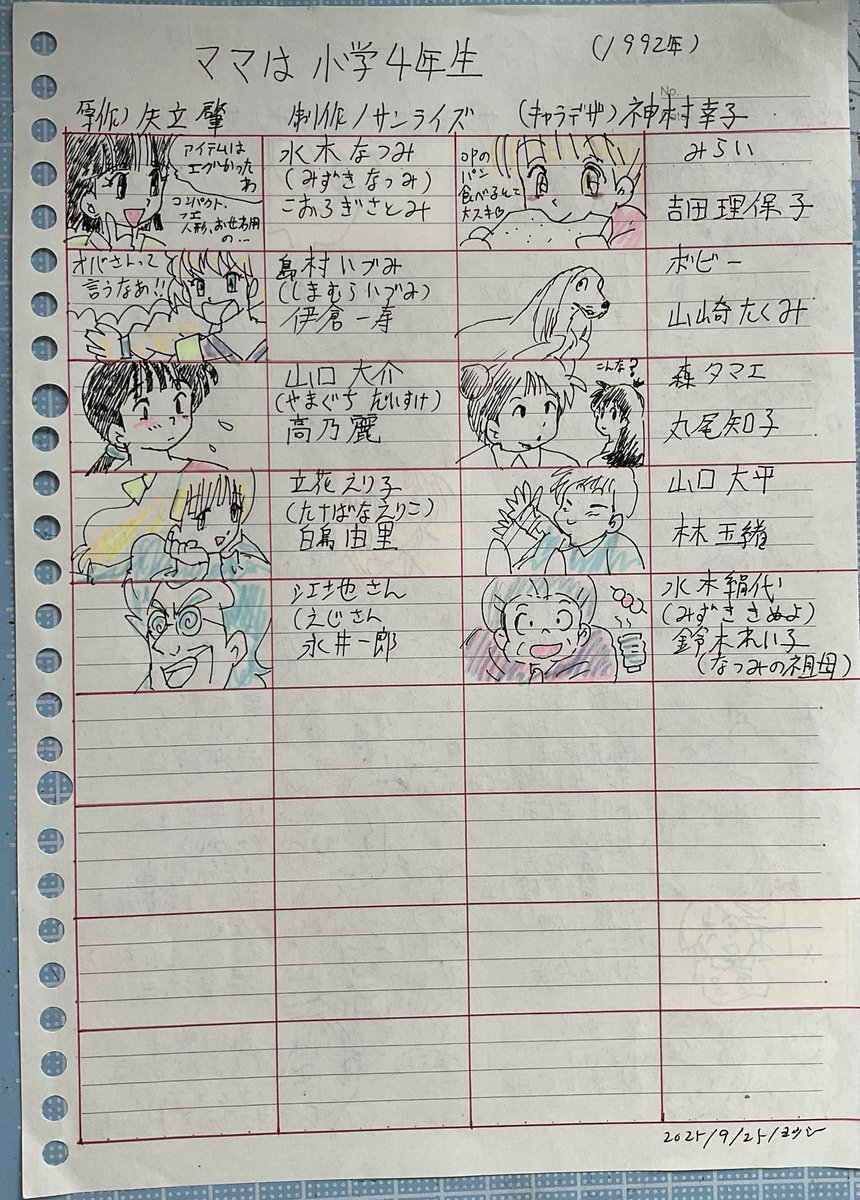 ママは小学4年生
(1992年)
No.
Date
原作) 矢立肇
制作/サンライズ
(キャラデザ) 神村幸子
アイテムは
エグかったわ
コンパクト、
フエ
人形、おせわ用
の…
水木なつみ
(みずきなつみ)
こおろぎさとみ
OPの
パン
食べるとこ
大スキ
みらい
吉田理保子
オバさんって
言うなあ!!
島村いづみ
(しまむらいづみ)
伊倉一寿
ボビー
山崎たくみ
山口大介
(やまぐちだいすけ)
高乃麗
こんな?
森タマエ
丸尾知子
立花えり子
(たちばなえりこ)
白鳥由里
山口大平
林玉緒
江地さん
(えじさん
永井一郎
水木絹代
(みずききぬよ)
鈴木れい子
(なつみの祖母)
2025/9/25/